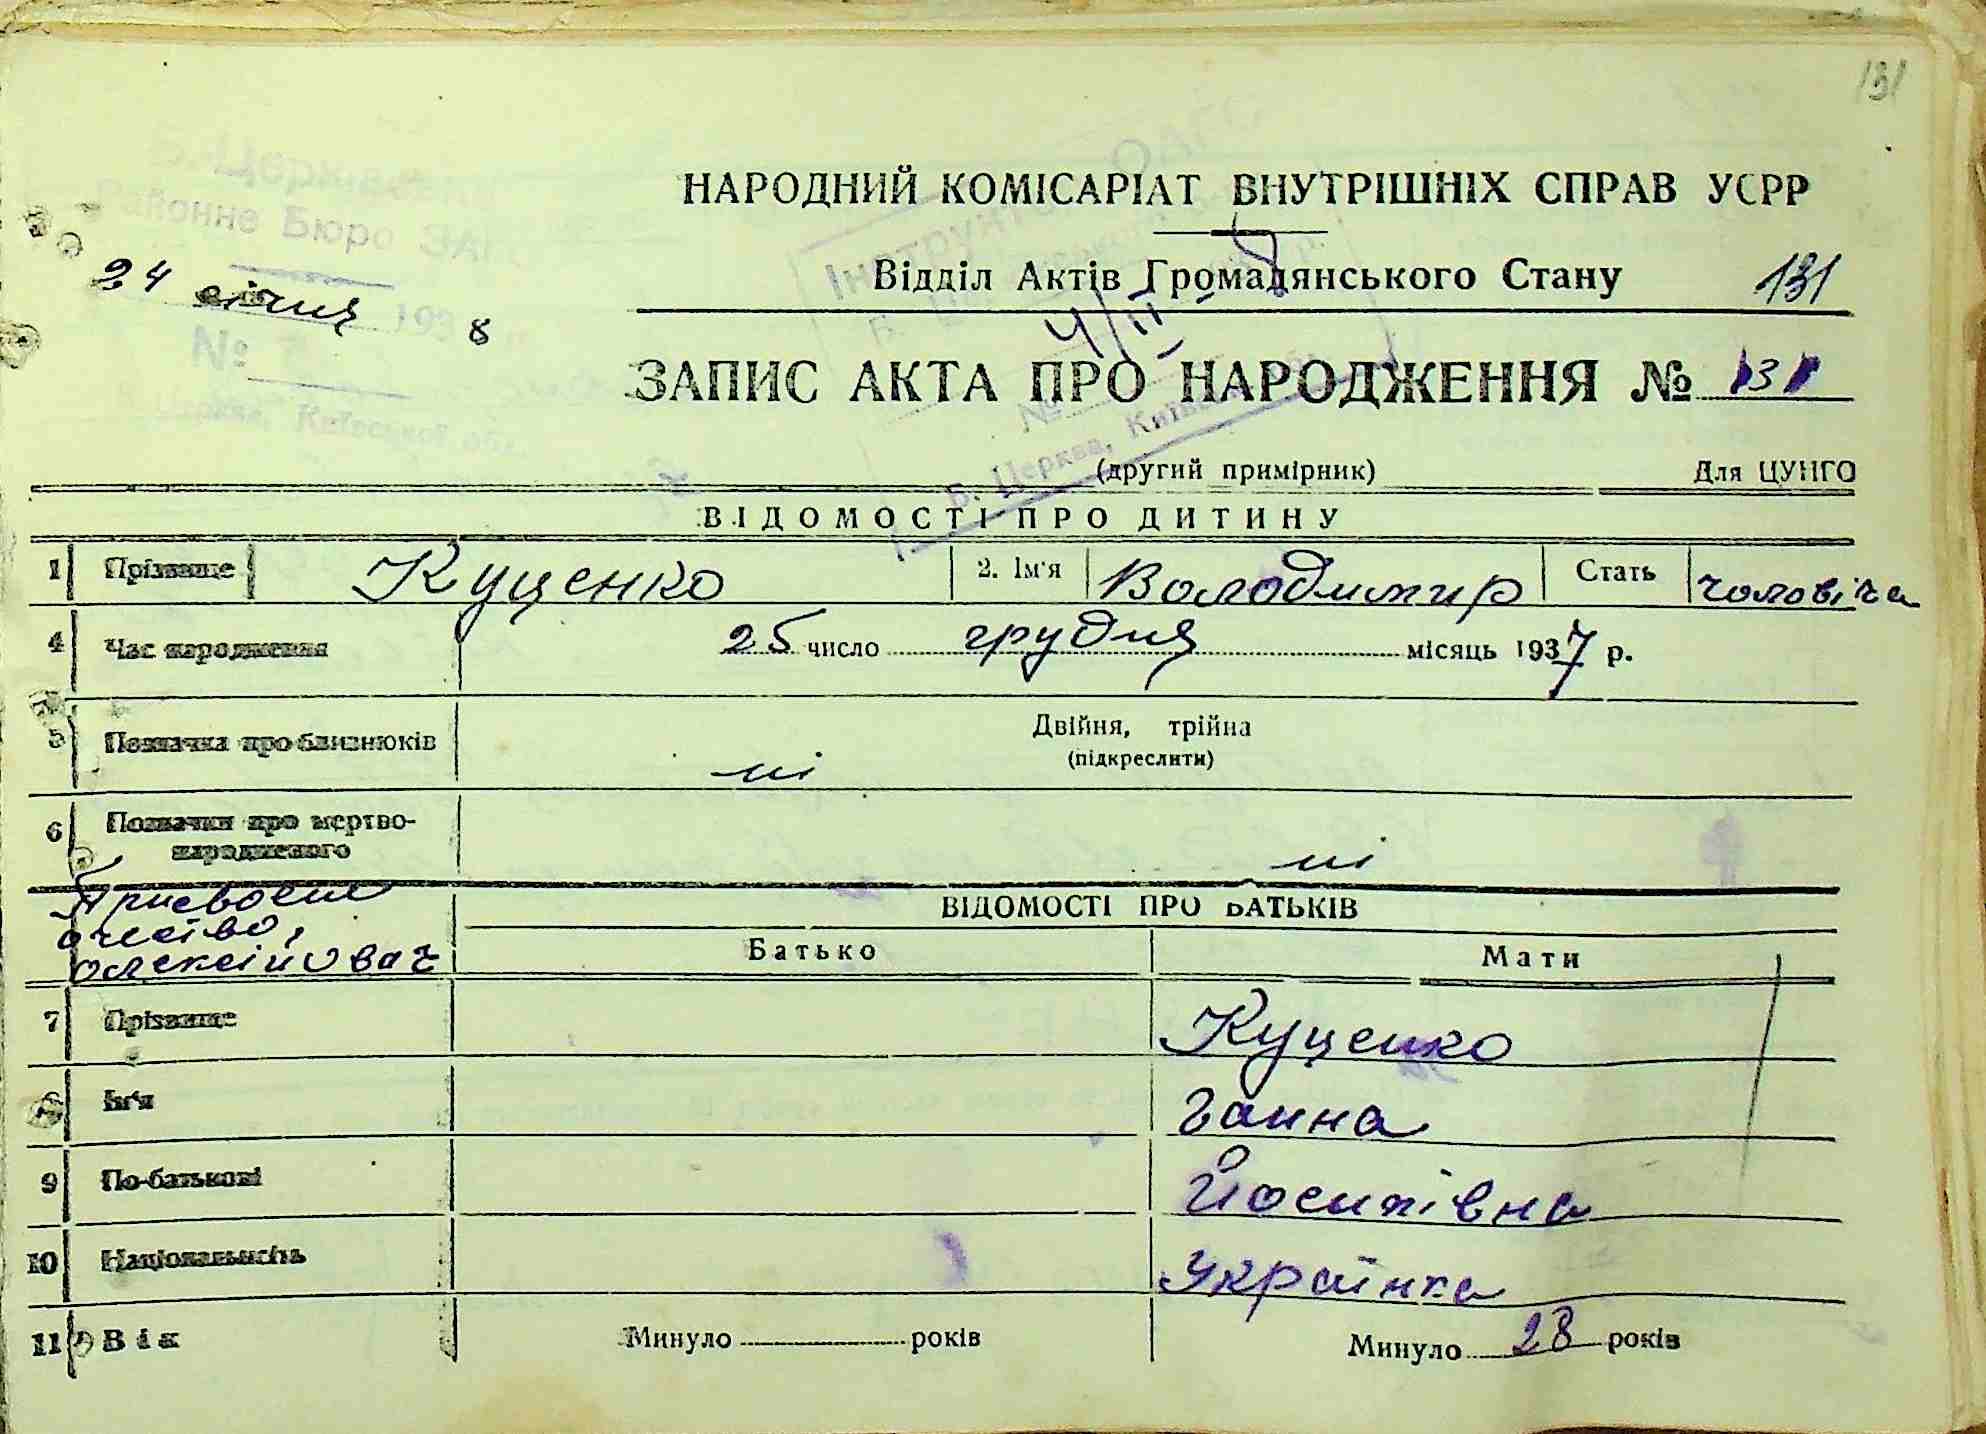 131
Б.-Церківське
Районне Бюро ЗАГС
24 січня 1938
№
Б. Церква, Київської обл.
НАРОДНИЙ КОМІСАРІАТ ВНУТРІШНІХ СПРАВ УСРР
Відділ Актів Громадянського Стану 131
ЗАПИС АКТА ПРО НАРОДЖЕННЯ № 131
(другий примірник) Для ЦУНГО
№
Б. Церква,
ВІДОМОСТІ ПРО ДИТИНУ
1 Прізвище Куценко 2. Ім'я Володимир Стать чоловіча
4 Час народження 25 число грудня місяць 1937 р.
5 Позначка про близнюків Двійня, трійна
(підкреслити)
ні
6 Позначки про мертво-
народженого ні
Присвоєно
очество,
олексійович
ВІДОМОСТІ ПРО БАТЬКІВ
Батько Мати
7 Прізвище Куценко
8 Ім'я Ганна
9 По-батькові Йосипівна
10 Національність Українка
11 Вік Минуло років Минуло 28 років